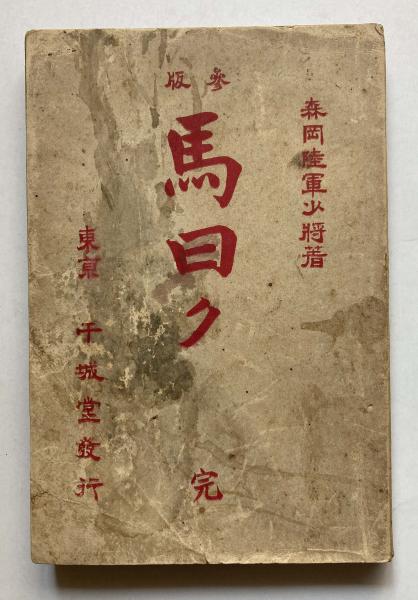 森岡陸軍少將著
参版
馬曰ク
完
東京 干城堂發行